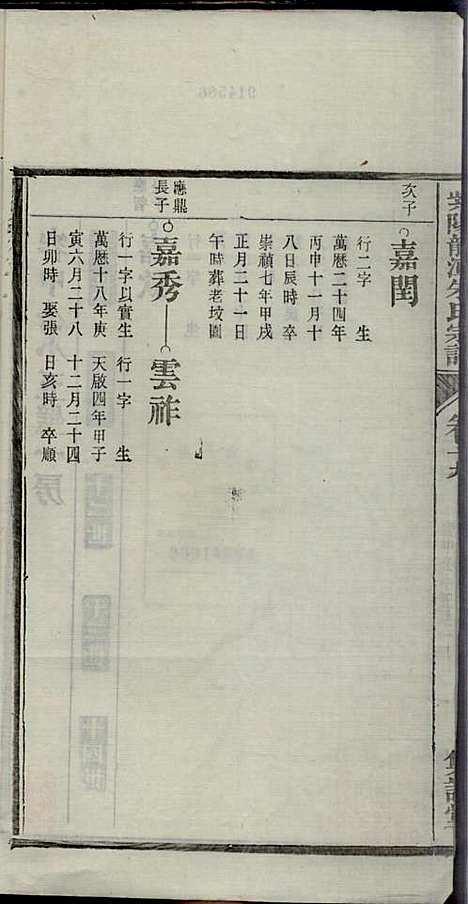 次子
嘉閏
行二字　生
萬曆二十四年
丙申十一月十
八日辰時　卒
崇禎七年甲戌
正月二十一日
午時葬老坟園
應鼎
長子
嘉秀
行一字以實生
萬曆十八年庚
寅六月二十八
日卯時　娶張
雲祚
行一字　生
天啟四年甲子
十二月二十四
日亥時　卒順